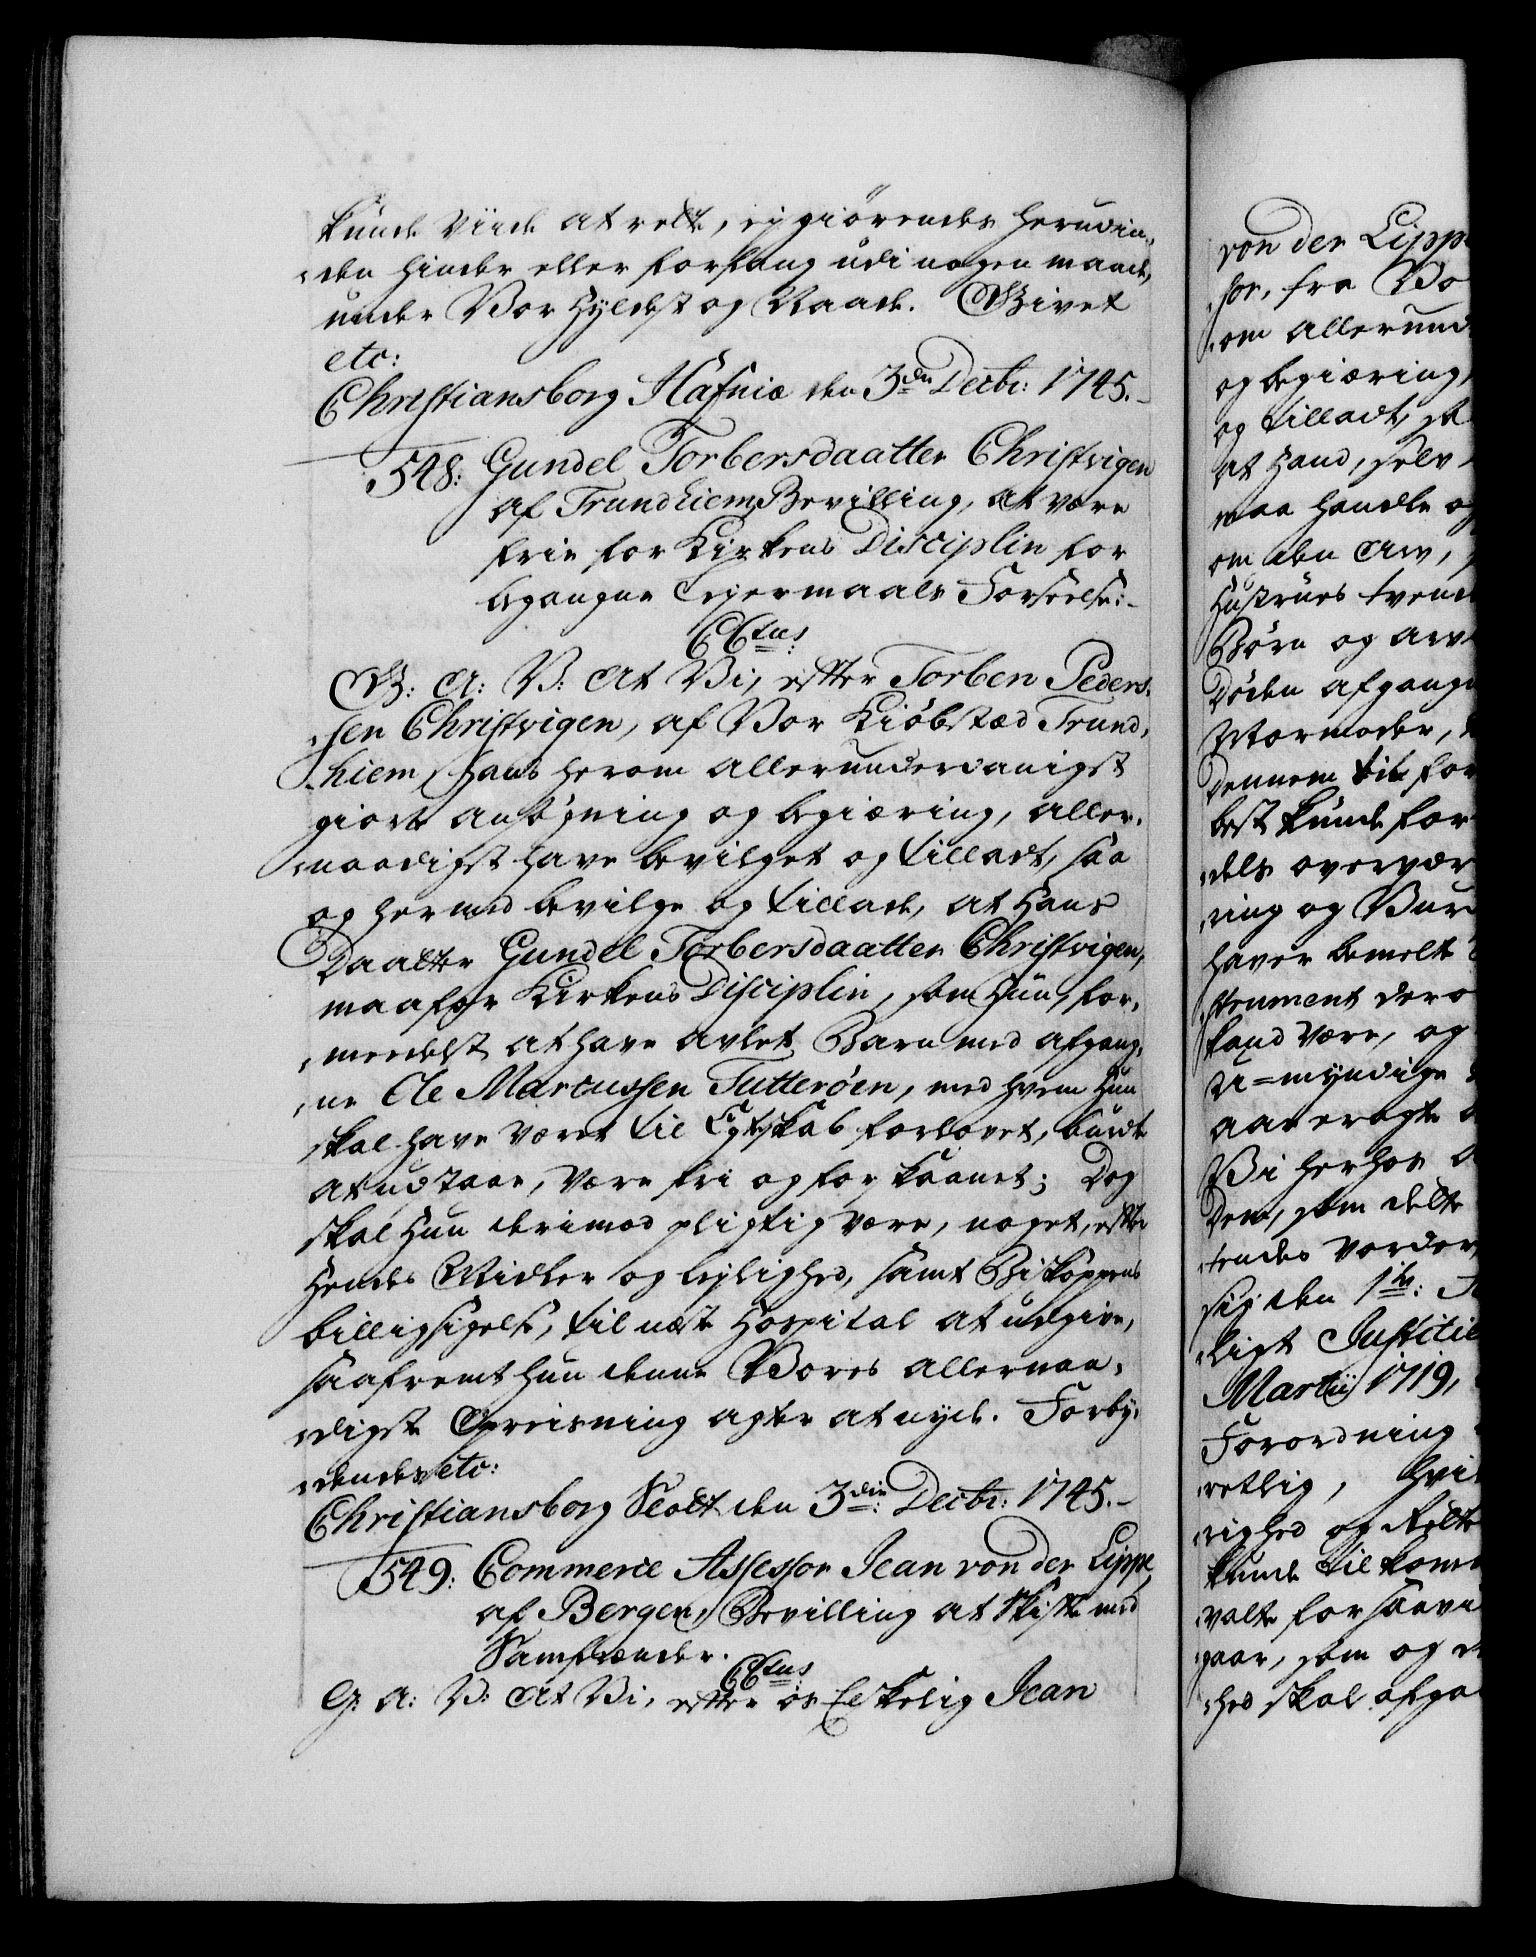 kunde viide at rette, ej giørendes herudin„
„den hinder eller forfang udi nogen maade,
under Vor Hyldest og Naade. Givet
etc:
Christiansborg Hafniæ den 3die Decbr: 1745.-
548: Gundel Torbersdaatter Christvigen
af Trundhiem, Bevilling, at være
frie for Kirkens Disciplin for
begangne Lejermaals Forseelse:-
CCtus
G: A: V: At Vi, efter Torben Peders„
„sen Christvigen, af Vor Kiøbstæd Trund„
„hiem, hans herom allerunderdanigst
giorte ansøgning og begiæring, aller„
„naadigst have bevilget og tilladt, saa
og hermed bevilge og tillade, at Hans
Daatter Gundel Torbersdaatter Christvigen,
maa for Kirkens Disciplin, som Hun, for„
„meedelst at have avlet Barn med afgang„
„ne Ole Marcussen Tutterøen, med hvem Hun
skal have været til Egteskab forlovet, burde
at udstaae, være fri og forskaanet; Dog
skal Hun derimod pligtig være, noget, efter
Hendes Midler og lejlighed, samt Biskoppens
billigsigelse, til næste Hospital at udgive,
saafremt hun denne Vores allernaa„
„digste Opreisning agter at nyde. Forby„
„dendes etc:
Christiansborg Slott den 3die Decbr: 1745.-
549: Commerce Assessor Jean von der Lippe,
af Bergen, Bevilling at skifte med
Samfrænder.
CCtus
G: A: V: At Vi, efter os Elskelig Jean
von der Lipp
for, fra Vo
„om allerund
og begiæring,
og tilladt, sa
at Hand, selv
maa handle og
om den Arv,
Hustrues tvend
Børn og arv
Døden afgangn
Mormoder,
dennem til for
best kunde for
„dels overvær
„ring og Vur
haver bemelte
„strument der o
kand være, og
U=myndige
aareragte
Vi herhos
Dem, som dette
„tendes vorder
sig den 1te:
„ligt Justitie
Martij 1719,
Forordning
„retlig, hvi
„righed og Rette
kunde tilkom
„valte forsaavi
„gaar, som og
„hed skal afga